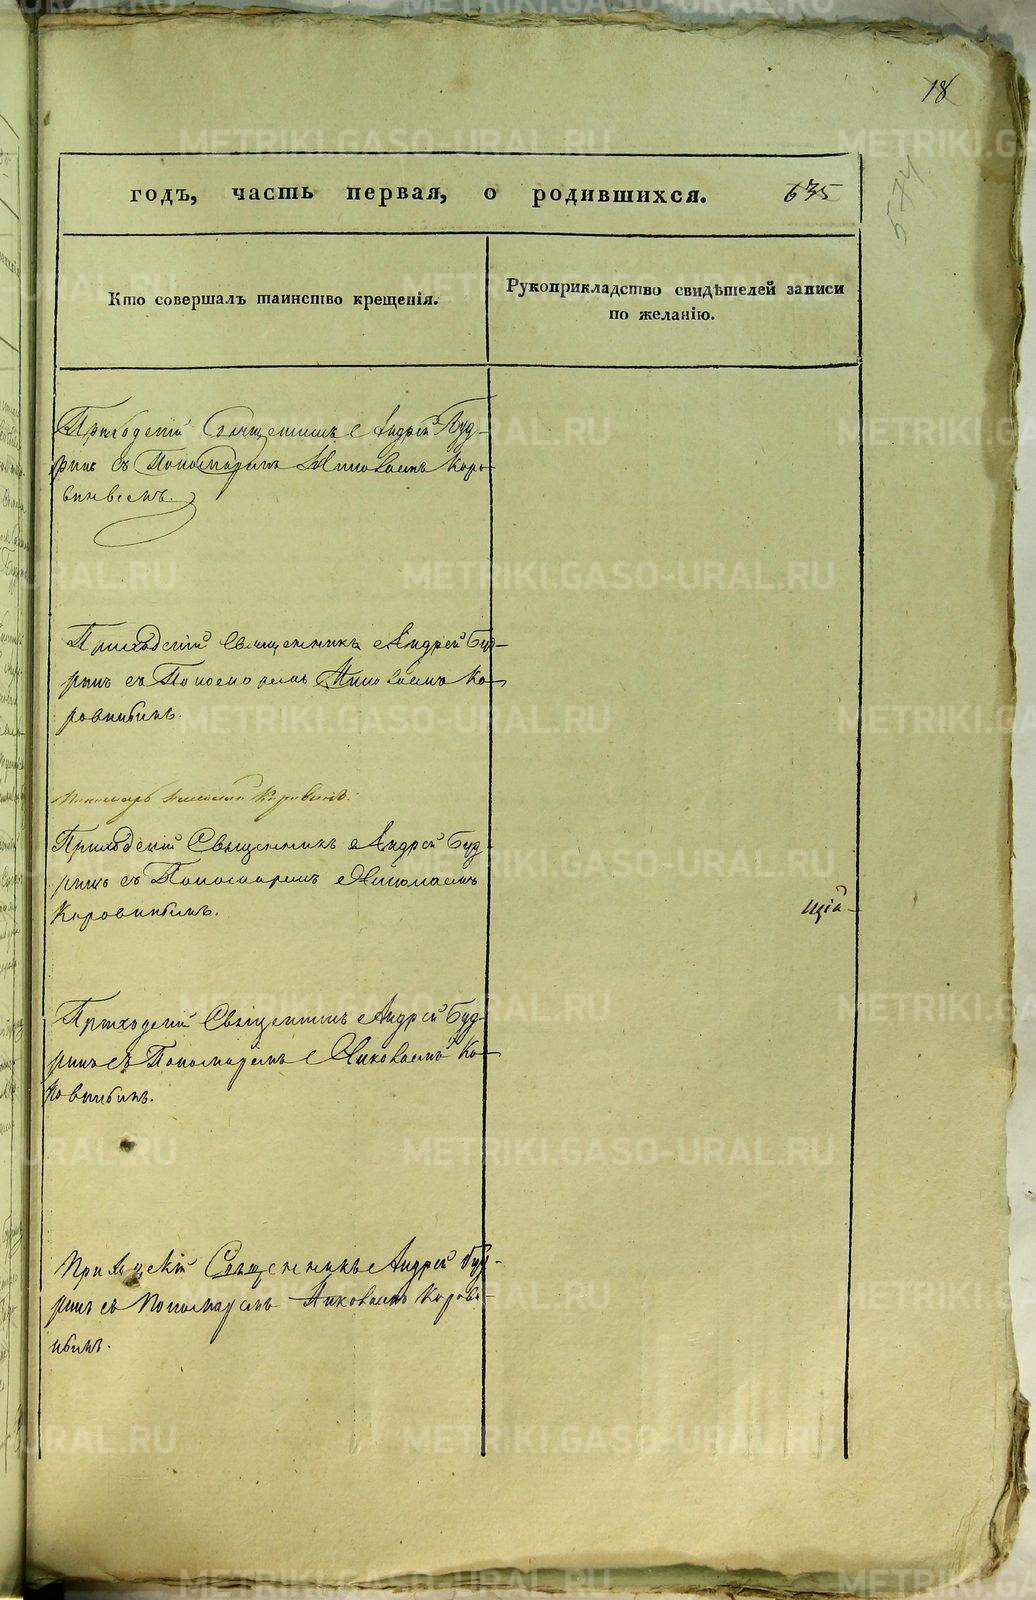 18
574
годъ, часть первая, о родившихся. 635
Кто совершалъ таинство крещенія.
Рукоприкладство свидѣтелей записи
по желанію.
Приходскій Священникъ Андрей Буд-
ринъ съ Пономаремъ Николаемъ Коро-
виновымъ.
Приходскій Священникъ Андрей Буд-
ринъ съ Пономаремъ Николаемъ Ко-
ровинымъ.
Пономарь Николай Коровинъ.
Приходскій Священникъ Андрей Буд-
ринъ съ Пономаремъ Николаемъ
Коровинымъ.
щіа-
Приходскій Священникъ Андрей Буд-
ринъ съ Пономаремъ Николаемъ Ко-
ровинымъ.
Приходскій Священникъ Андрей Буд-
ринъ съ Пономаремъ Николаемъ Корови-
нымъ.
METRIKI.GASO-URAL.RU